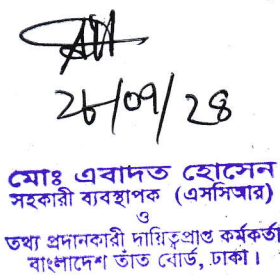 ২৮/০৭/২৪
মোঃ এবাদত হোসেন
সহকারী ব্যবস্থাপক (এসসিআর)
ও
তথ্য প্রদানকারী দায়িত্বপ্রাপ্ত কর্মকর্তা
বাংলাদেশ তাঁত বোর্ড, ঢাকা।